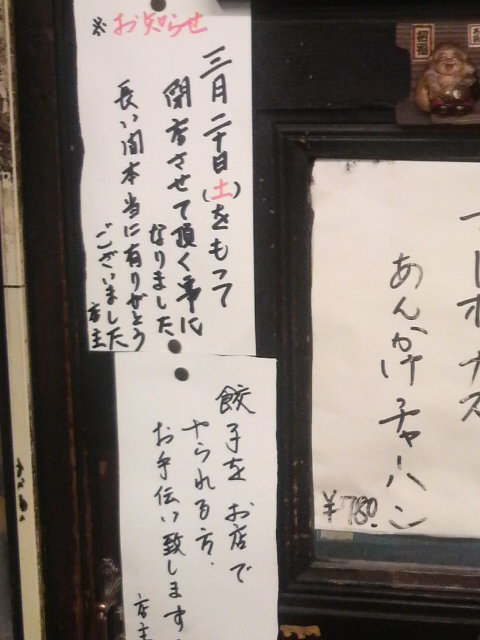 ※お知らせ
三月二十日(土)をもって
閉店させて頂く事に
なりました
長い間本当に有りがとう
ございました
店主
餃子をお店で
やられる方、
お手伝い致します。
店主
マーボナス
あんかけチャーハン
¥780
招福